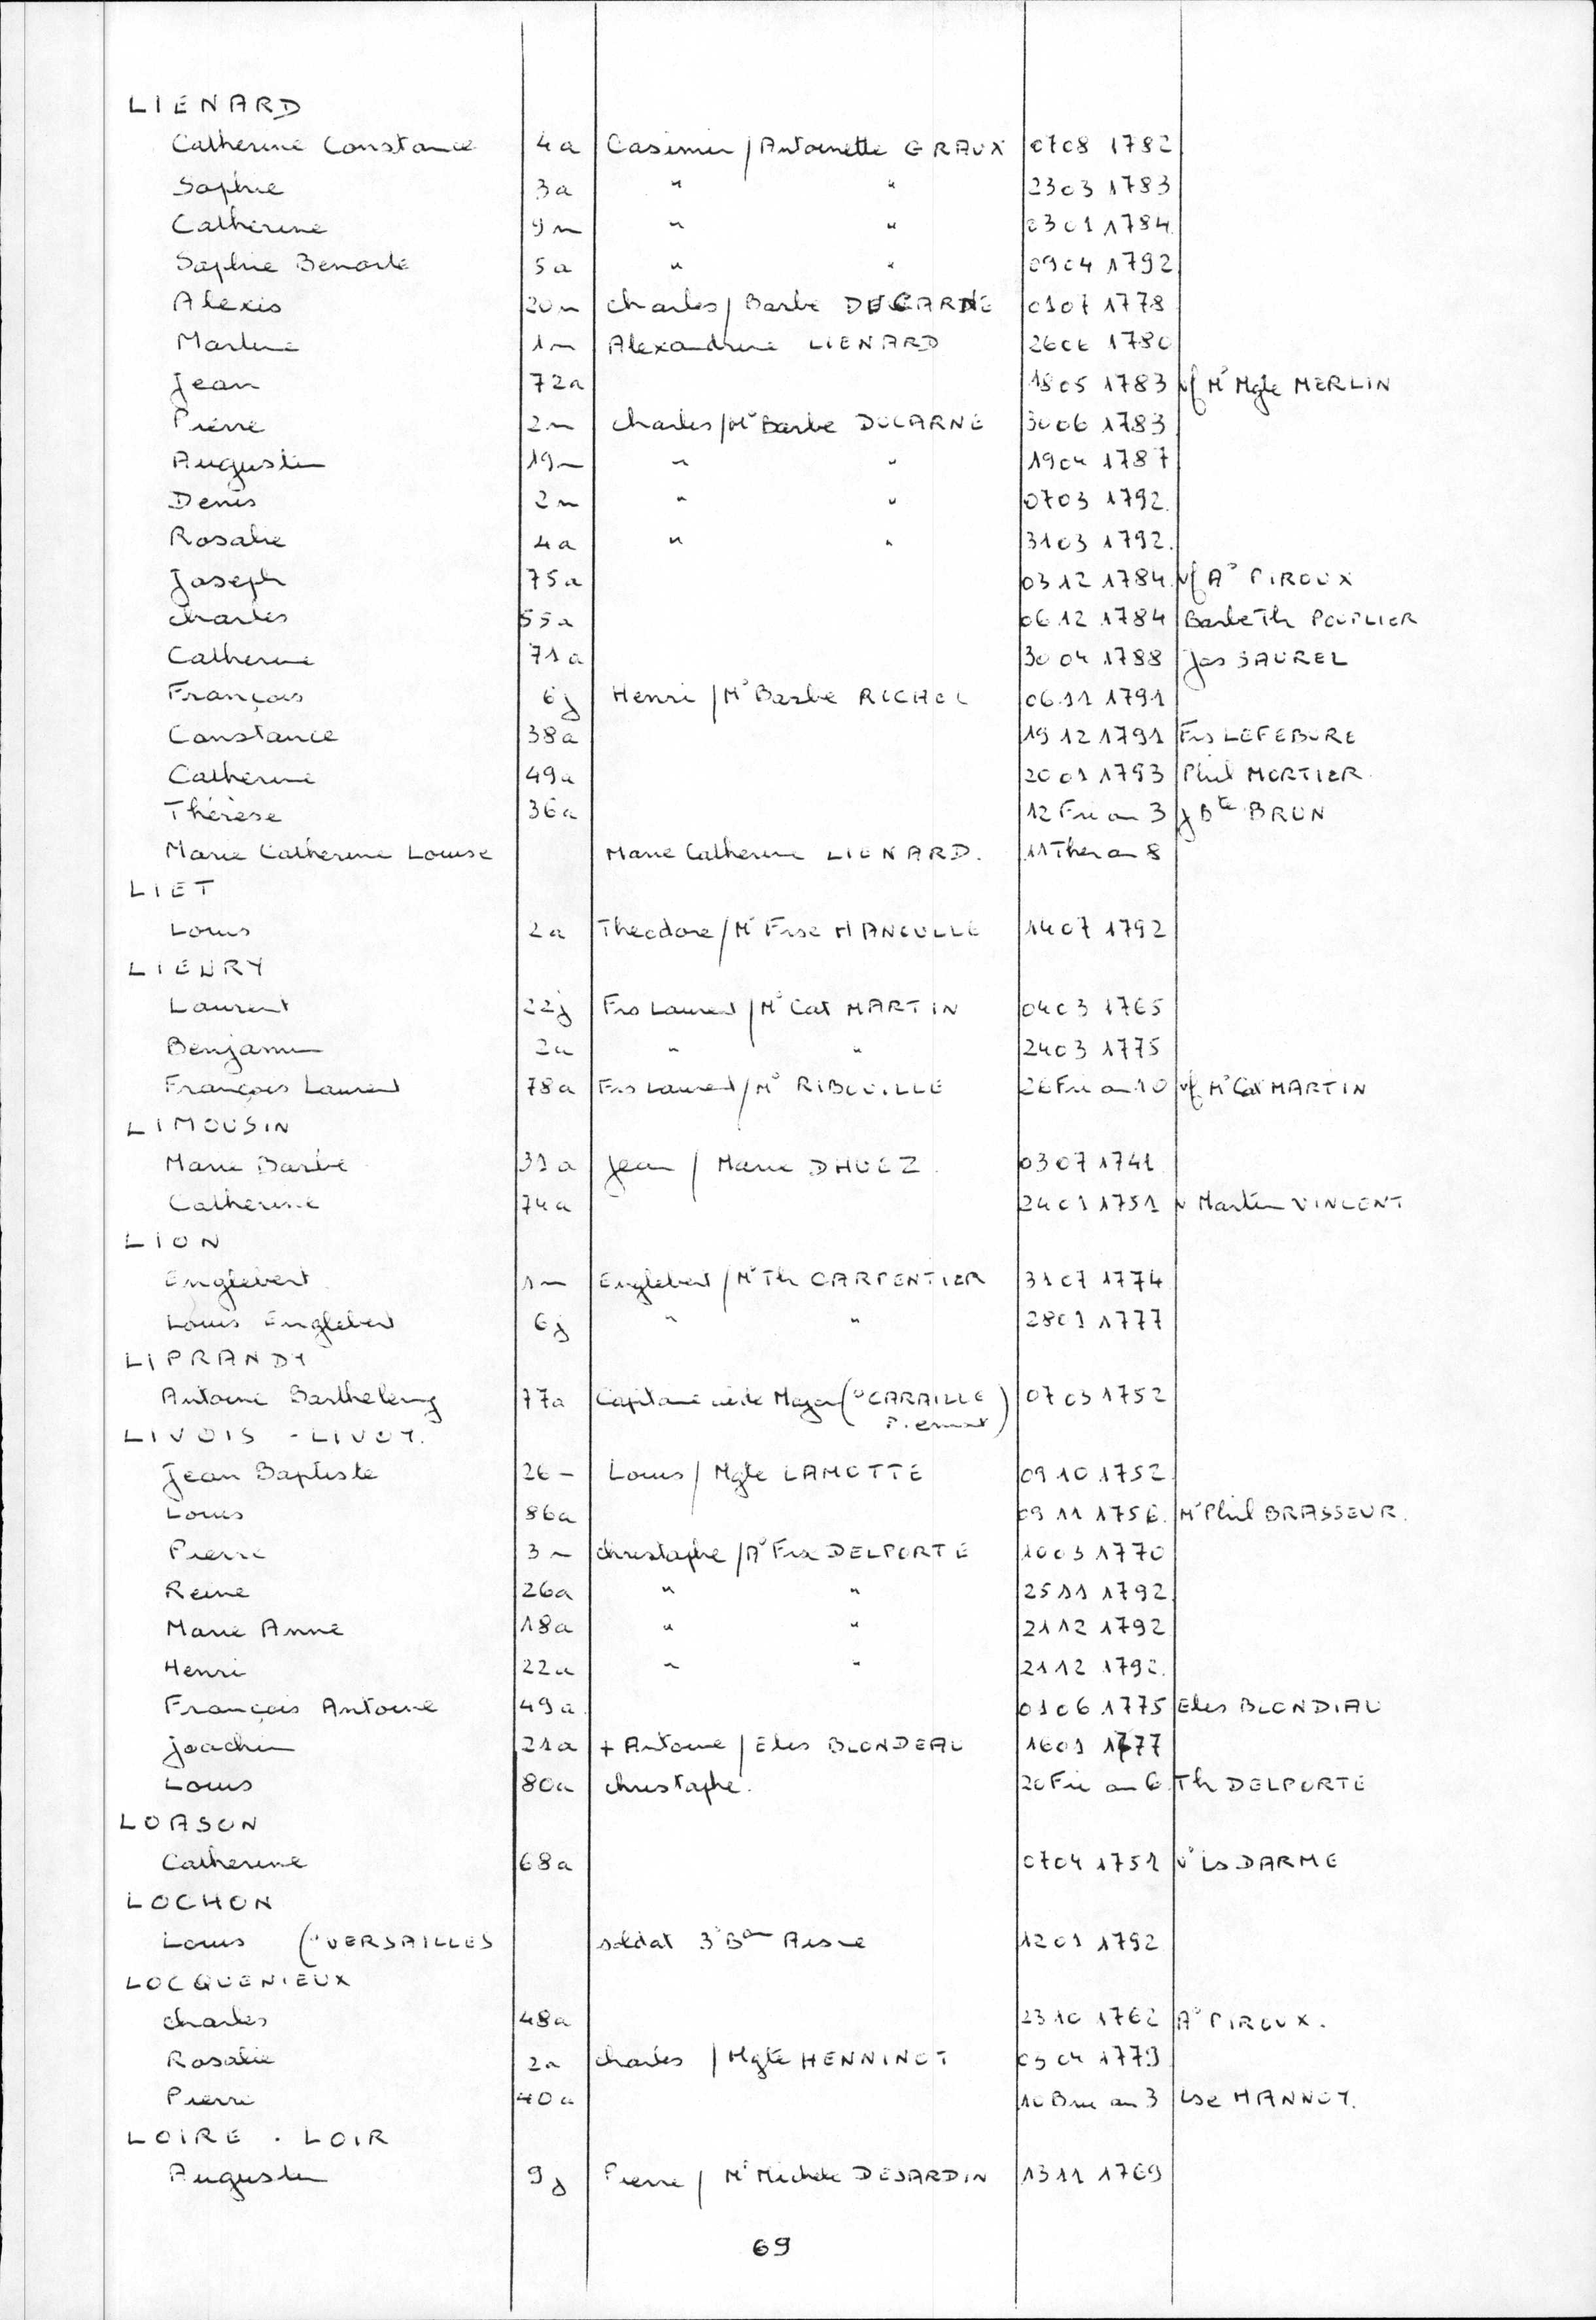 LIENARD
Catherine Constance 4a Casimir / Antoinette GRAUX 0708 1782
Sophie 3a " " 2303 1783
Catherine 9m " " 0301 1784
Sophie Benoite 5a " " 0904 1792
Alexis 20m Charles / Barbe DECARNE 0107 1778
Martine 1m Alexandrine LIENARD 2606 1780
Jean 72a 1805 1783 vf Mie Mgte MERLIN
Pierre 2m Charles / Mie Barbe DUCARNE 3006 1783
Augustin 19m " " 1904 1787
Denis 2m " " 0703 1792.
Rosalie 4a " " 3103 1792.
Joseph 75a 0312 1784 vf Ae PIROUX
Charles 55a 0612 1784 Barbe Th POUPLIER
Catherine 71a 3004 1788 Jos SAUREL
François 6j Henri / Mie Barbe RICHEL 0611 1791
Constance 38a 1912 1791 Frs LEFEBURE
Catherine 49a 2001 1793 Phil MORTIER
Thérèse 36a 12 Fri an 3 J Bte BRUN
Marie Catherine Louise Marie Catherine LIENARD. 11 Ther an 8
LIET
Louis 2a Theodore / Mie Frse 1407 1792
LIENRY
Laurent 22j Frs Laurent / Mie Cat MARTIN 0403 1765
Benjamin 2a " " 2403 1775
François Laurent 78a Frs Laurent / Mie RIBOUILLE 26 Fri an 10 vf Mie Cat MARTIN
LIMOUSIN
Marie Barbe 31a Jean / Marie DHUEZ 0307 1741
Catherine 74a 2401 1751 v Martin VINCENT
LION
Englebert 1m Englebert / Mie Th CARPENTIER 3107 1774
Louis Englebert 6j " " 2801 1777
LIPRANDY
Antoine Barthelemy 77a Capitaine aide Major (o CARAILLE 0703 1752
Piemont)
LIVOIS - LIVOY.
Jean Baptiste 26m Louis / Mgte LAMOTTE 0910 1752
Louis 86a 0911 1756. Mie Phil BRASSEUR.
Pierre 3m Christophe / Ae Frse DELPORTE 1003 1770
Reine 26a " " 2511 1792
Marie Anne 18a " " 2112 1792
Henri 22a " " 2112 1792.
François Antoine 49a 0106 1775 Eles BLONDIAU
Joachim 21a + Antoine / Eles BLONDEAU 1601 1777
Louis 80a Christophe. 20 Fri an 6 Th DELPORTE
LOASON
Catherine 68a 0704 1751 ve Ls DARME
LOCHON
Louis (o VERSAILLES soldat 3e Bon Aisne 1201 1792
LOCQUENIEUX
Charles 48a 2310 1762 Ae PIROUX.
Rosalie 2a Charles / Mgte HENNINOT 0504 1779
Pierre 40a 10 Bru an 3 Lse HANNOY.
LOIRE . LOIR
Augustin 9j Pierre / Mie Michele DESARDIN 1311 1769
69